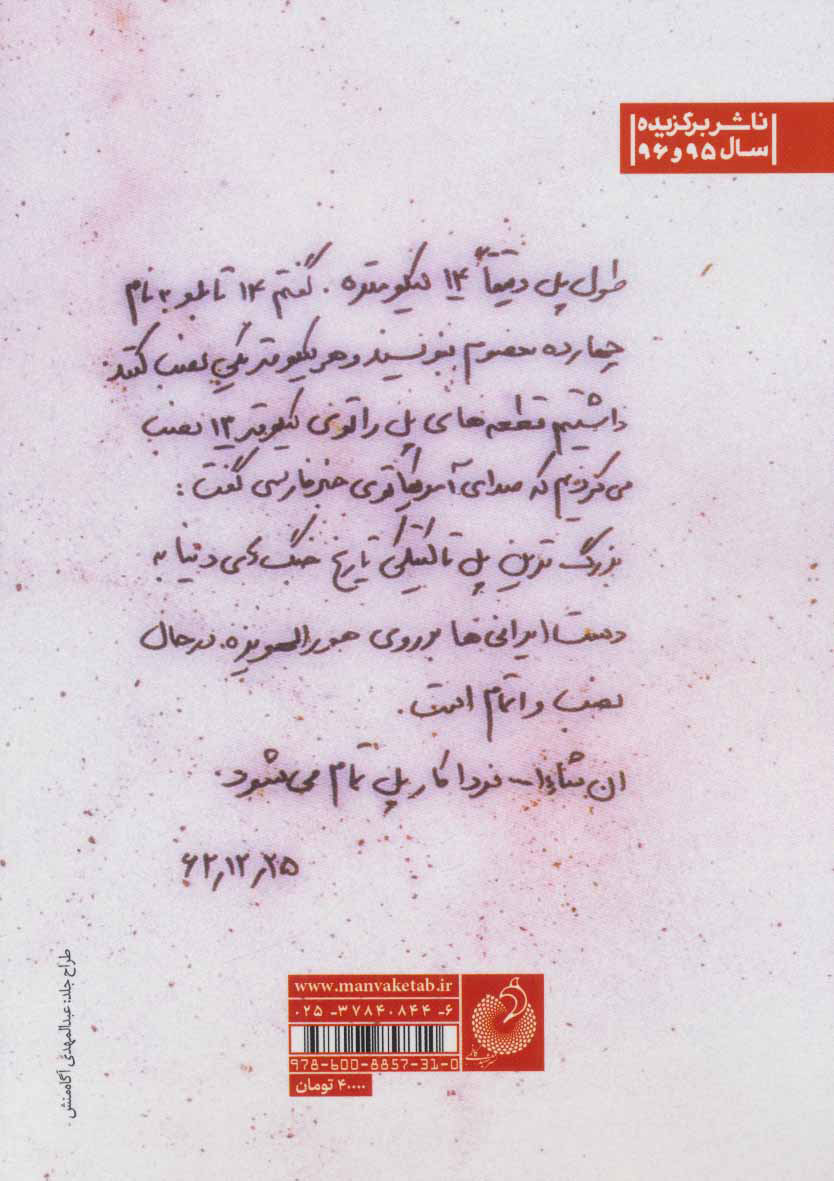 ناشر برگزیده
سال ۹۵ و ۹۶
طول پل دقیقاً ۱۴ کیلومتره. گفتم ۱۴ تابلو به نام
چهارده معصوم بنویسید و هر کیلومتر یکی نصب کنند.
داشتیم قطعه‌های پل را توی کیلومتر ۱۳ نصب
می‌کردیم که صدای آمریکا توی خبر فارسی گفت:
بزرگ ترین پل تاکتیکی تاریخ جنگ‌های دنیا به
دست ایرانی‌ها بر روی هورالهویزه در حال
نصب و اتمام است.
ان شاءا... فردا کار پل تمام می‌شود.
۶۲٫۱۲٫۲۵
طراح جلد: عبدالمهدی آگاه‌منش
www.manvaketab.ir
۰۲۵ -۳۷۸۴۰۸۴۴ -۶
978-600-8857-31-0
۴۰۰۰۰ تومان